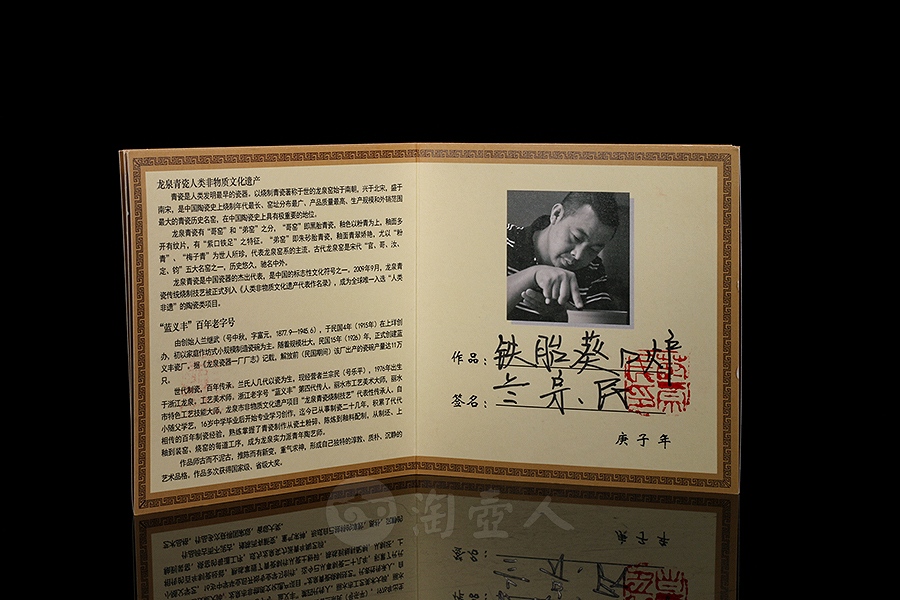 龙泉青瓷人类非物质文化遗产
青瓷是人类发明最早的瓷器，以烧制青瓷著称于世的龙泉窑始于南朝，兴于北宋，盛于
南宋，是中国陶瓷史上烧制年代最长、窑址分布最广、产品质量最高、生产规模和外销范围
最大的青瓷历史名窑，在中国陶瓷史上具有极重要的地位。
龙泉青瓷有“哥窑”和“弟窑”之分，“哥窑”即黑胎青瓷，釉色以粉青为上，釉面多
开有纹片，有“紫口铁足”之特征，“弟窑”即朱砂胎青瓷，釉面青翠娇艳，尤以“粉
青”、“梅子青”为世人所珍，代表龙泉窑系的主流。古代龙泉窑是宋代“官、哥、汝、
定、钧”五大名窑之一，历史悠久，驰名中外。
龙泉青瓷是中国瓷器的杰出代表，是中国的标志性文化符号之一。2009年9月，龙泉青
瓷传统烧制技艺被正式列入《人类非物质文化遗产代表作名录》，成为全球唯一入选“人类
非遗”的陶瓷类项目。
“蓝义丰”百年老字号
由创始人兰继武（号中秋，字富元，1877.9—1945.6），于民国4年（1915年）在上垟创
办，初以家庭作坊式小规模制造瓷碗为主，随着规模壮大，民国15年（1926）年，正式创建蓝
义丰瓷厂。据《龙泉瓷器一厂厂志》记载，解放前（民国期间）该厂出产的瓷碗产量达11万
只。
世代制瓷，百年传承，兰氏人几代以瓷为生，现经营者兰宗民（号乐平），1976年出生
于浙江龙泉，工艺美术师，浙江老字号“蓝义丰”第四代传人，丽水市工艺美术大师，丽水
市特色工艺技能大师，龙泉市非物质文化遗产项目“龙泉青瓷烧制技艺”代表性传承人。自
小随父学艺，16岁中学毕业后开始专业学习创作，迄今已从事制瓷二十几年，积累了代代
相传的百年制瓷经验，熟练掌握了青瓷制作从瓷土粉碎、陈炼到釉料配制，从制坯、上
釉到装窑、烧窑的每道工序，成为龙泉实力派青年陶艺师。
作品师古而不泥古，推陈而有新变，重气求神，形成自己独特的淳敦、质朴、沉静的
艺术品格，作品多次获得国家级、省级大奖。
作品：铁胎葵口
签名：兰宗民
庚子年
淘壶人